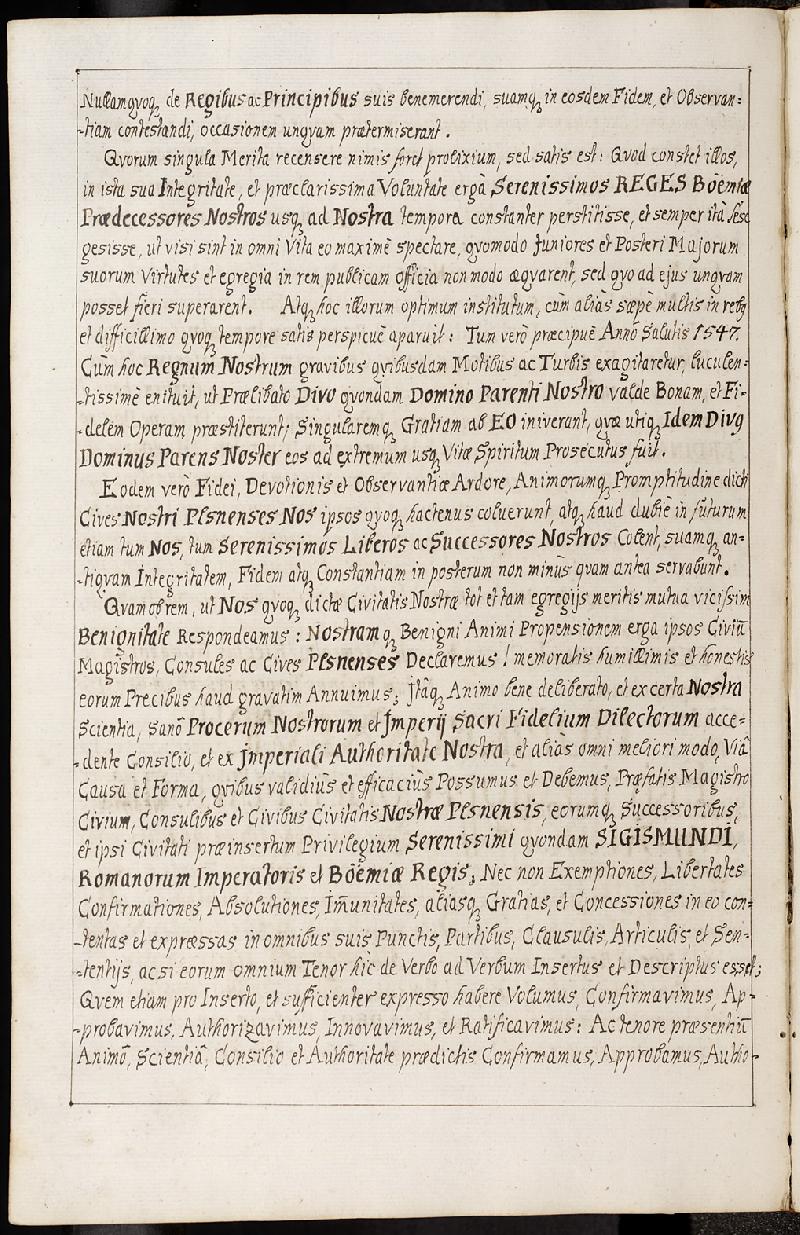 Nullamqvoq, de Regibus ac Principibus suis benemerendi, suamq, in eosdem Fidem, et Observan=
-tiam contestandi, occasionem unqvam prætermiserant.
Qvorum singula Merita recensere nimis foret prolixium, sed satis est: Qvod constet illos,
in ista sua Integritate, et præclarissima Voluntate ergà Serenissimos REGES Böemiæ
Prædecessores Nostros usq, ad Nostra tempora constanter perstitisse, et semper ità sese
gesisse, ut visi sint in omni Vita eo maximè spectare, qvomodo Juniores et Posteri Majorum
suorum Virtutes et egregia in rem publicam officia non modo æqvarent, sed qvo ad ejus unqvam
posset fieri superarent. Atq, hoc illorum optimum institutum, cùm aliàs sæpè multis in rebg
et difficillimo qvoq, tempore satis perspicuè aparuit: Tum verò præcipuè Annô Salutis 1547.
Cùm hoc Regnum Nostrum gravibus qvibusdam Motibus ac Turbis exagitaretur, luculen=
-tissimè enituit, ut Prælibato Divo qvondam Domino Parenti Nostro valde Bonam, et Fi-
-delem Operam præstiterunt; Singularemq, Gratiam ab EO iniverant, qvæ utiq, Idem Divg
Dominus Parens Noster eos ad extremum usq, Vitæ Spiritum Prosecutus fuit.
Eodem verò Fidei, Devotionis et Observantiæ Ardore, Animorumq, Promptitudine dicti
Cives Nostri Plsnenses Nos ipsos qvoq, hactenus coluerunt, atq, haud dubiè in futurum
etiam tum Nos, tum Serenissimos Liberos ac Successores Nostros Colent, suamq, an=
-tiqvam Integritatem, Fidem atq, Constantiam in posterum non minùs qvam antea servabunt.
Qvamobrem, ut Nos qvoq, dictæ Civitatis Nostræ tot et tam egregijs meritis mutua vicissim
Benignitate Respondeamus: Nostramq, Benigni Animi Propensionem erga ipsos Civiũ
Magistros, Consules ac Cives Plsnenses Declaremus! memoratis humillimis et honestis
eorum Precibus haud gravatim Annuimus; Jtaq, Animo bene deliberato, et ex certa Nostra
Scientia, Sanô Procerum Nostrorum et Jmperij Sacri Fidelium Dilectorum acce=
-dente Consilio, et ex Jmperiali Authoritate Nostra, et aliàs omni meliori modo, Viâ
Causa et Forma, qvibus validiùs et efficaciùs Possumus et Debemus, Præfatis Magistro
Civium, Consulibus et Civibus Civitatis Nostræ Plsnensis, eorumq, Successoribus,
et ipsi Civitati præinsertum Privilegium Serenissimi qvondam SIGISMUNDI,
Romanorum Imperatoris et Böemiæ Regis, Nec non Exemptiones, Libertates
Confirmationes, Absolutiones, Im̃unitates, aliasq, Gratias, et Concessiones in eo con-
-tentas et expræssas in omnibus suis Punctis, Partibus, Clausulis, Articulis, et Sen=
-tentijs, ac si eorum omnium Tenor hîc de Verbo ad Verbum Insertus et Descriptus esset;
Qvem etiam pro Inserto, et sufficienter expresso habere Volumus, Confirmavimus, Ap-
-probavimus, Authorizavimus, Innovavimus, et Ratificavimus: Ac tenore præsentiũ
Animô, Scientiâ, Consilio et Authoritate prædictis Confirmamus, Approbamus, Autho-